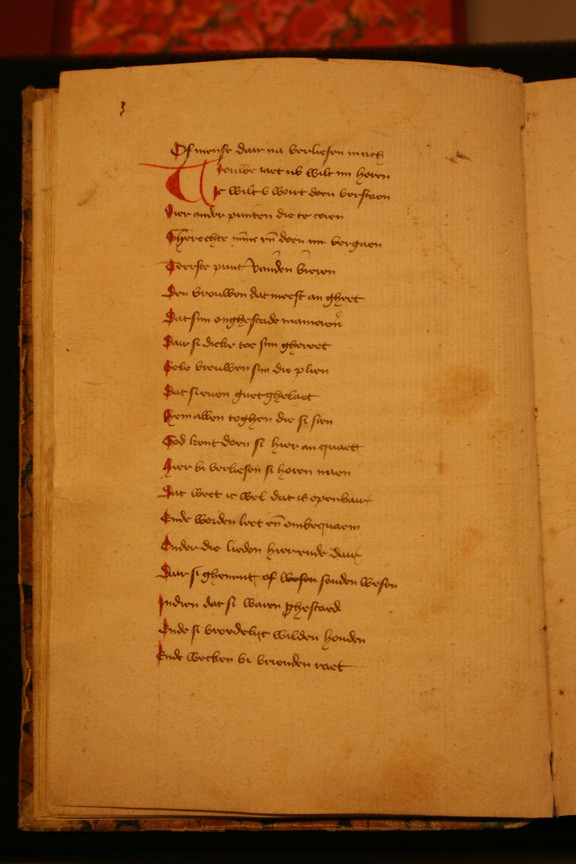 Of mense daer na verliesen mach
Vrouwe laet u wilt mi horen
Ic wilt v wort doen verstaen
Vier ander punten die te voren
Gherechte minne en̄ doen mi vergaen
Teerste punt vanden vieren
Den vrouwen dat meest an gheet
Dat sijn onghestade manieren
Daer si dicke toe sijn ghereet
Vele vrouwen sijn die plien
Dat si enen guet ghelaet
Hem allen toghen die si sien
God kent doen si hier an quaet
Hier bi verliesen si horen naen
Dat weet ic wel dat is openbaer
Ende worden leet en̄ ombequaem
Onder die lieden hier ende daer
Daer si ghemint of wesen souden wesen
Indien dat si waren ghestaed
Ende si vroedelijc wilden houden
Ende wecken bi vrienden raet